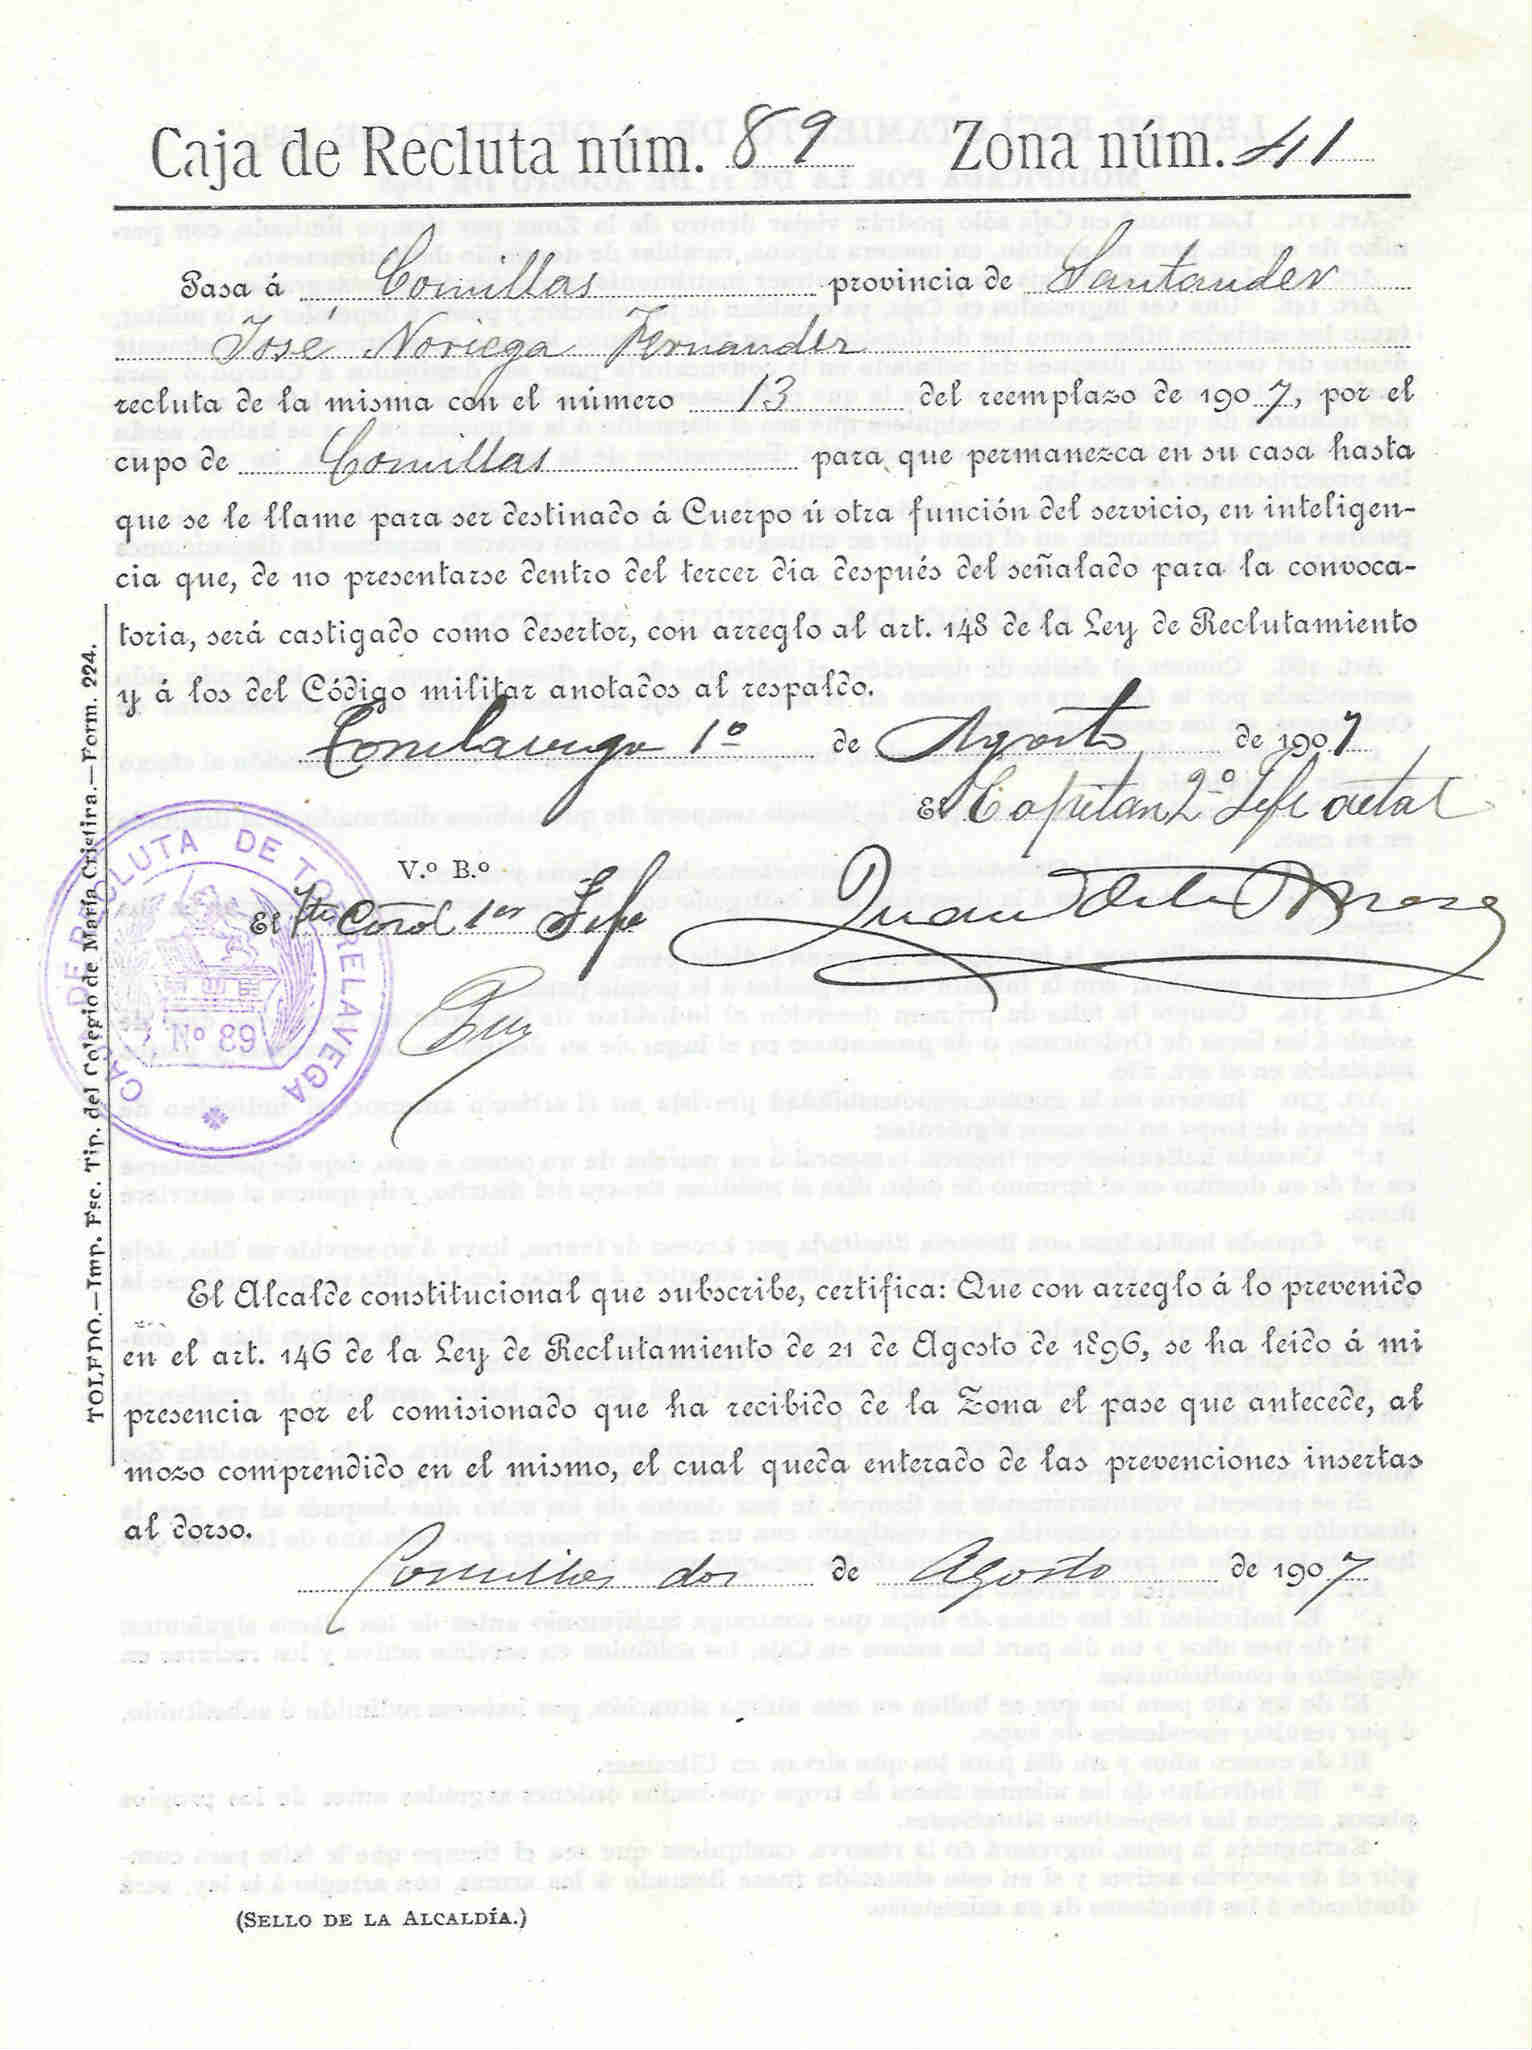 Caja de Recluta núm. 89 Zona núm. 41
Pasa á Comillas provincia de Santander
José Noriega Fernandez
recluta de la misma con el número 13 del reemplazo de 1907, por el
cupo de Comillas para que permanezca en su casa hasta
que se le llame para ser destinado á Cuerpo ú otra función del servicio, en inteligen-
cia que, de no presentarse dentro del tercer día después del señalado para la convoca-
toria, será castigado como desertor, con arreglo al art. 148 de la Ley de Reclutamiento
y á los del Código militar anotados al respaldo.
Torrelavega 1º de Agosto de 1907
El Capitan 2º Jefe actal
V.º B.º
El Tte Corol 1er Jefe
Juan de la
CAJA DE RECLUTA DE TORRELAVEGA
Nº 89
TOLEDO.—Imp. Esc. Tip. del Colegio de María Cristina.—Form. 224.
El Alcalde constitucional que subscribe, certifica: Que con arreglo á lo prevenido
en el art. 146 de la Ley de Reclutamiento de 21 de Agosto de 1896, se ha leido á mi
presencia por el comisionado que ha recibido de la Zona el pase que antecede, al
mozo comprendido en el mismo, el cual queda enterado de las prevenciones insertas
al dorso.
Comillas dos de Agosto de 1907
(SELLO DE LA ALCALDÍA.)